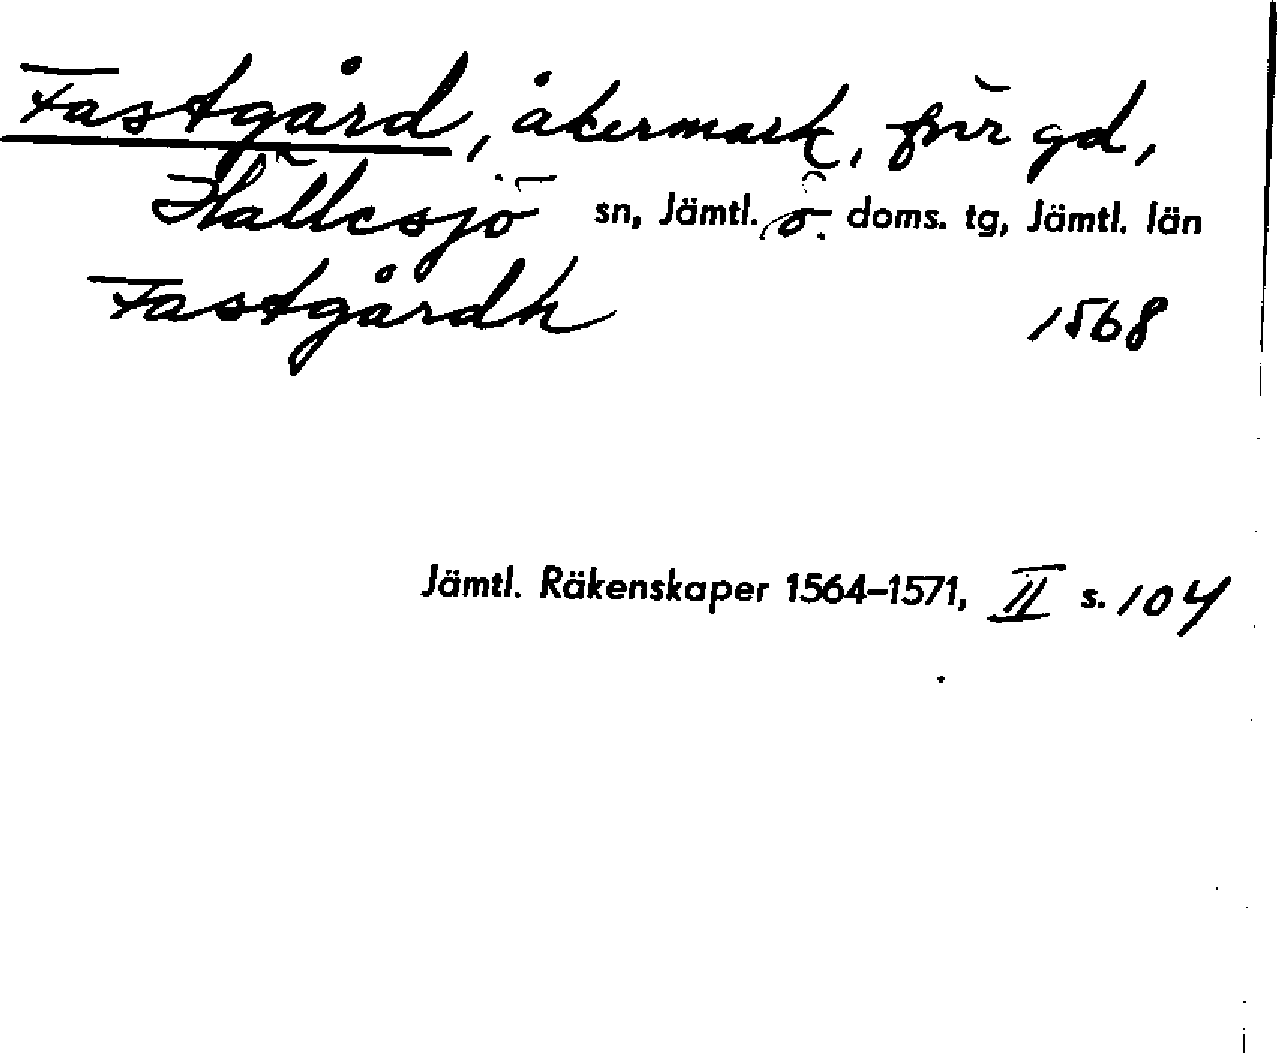 Fastgård, åkermark, förr gd,
Hällesjö sn, Jämtl. ö. doms. tg, Jämtl. län
Fastgårdh 1568
Jämtl. Räkenskaper 1564–1571, II s. 104